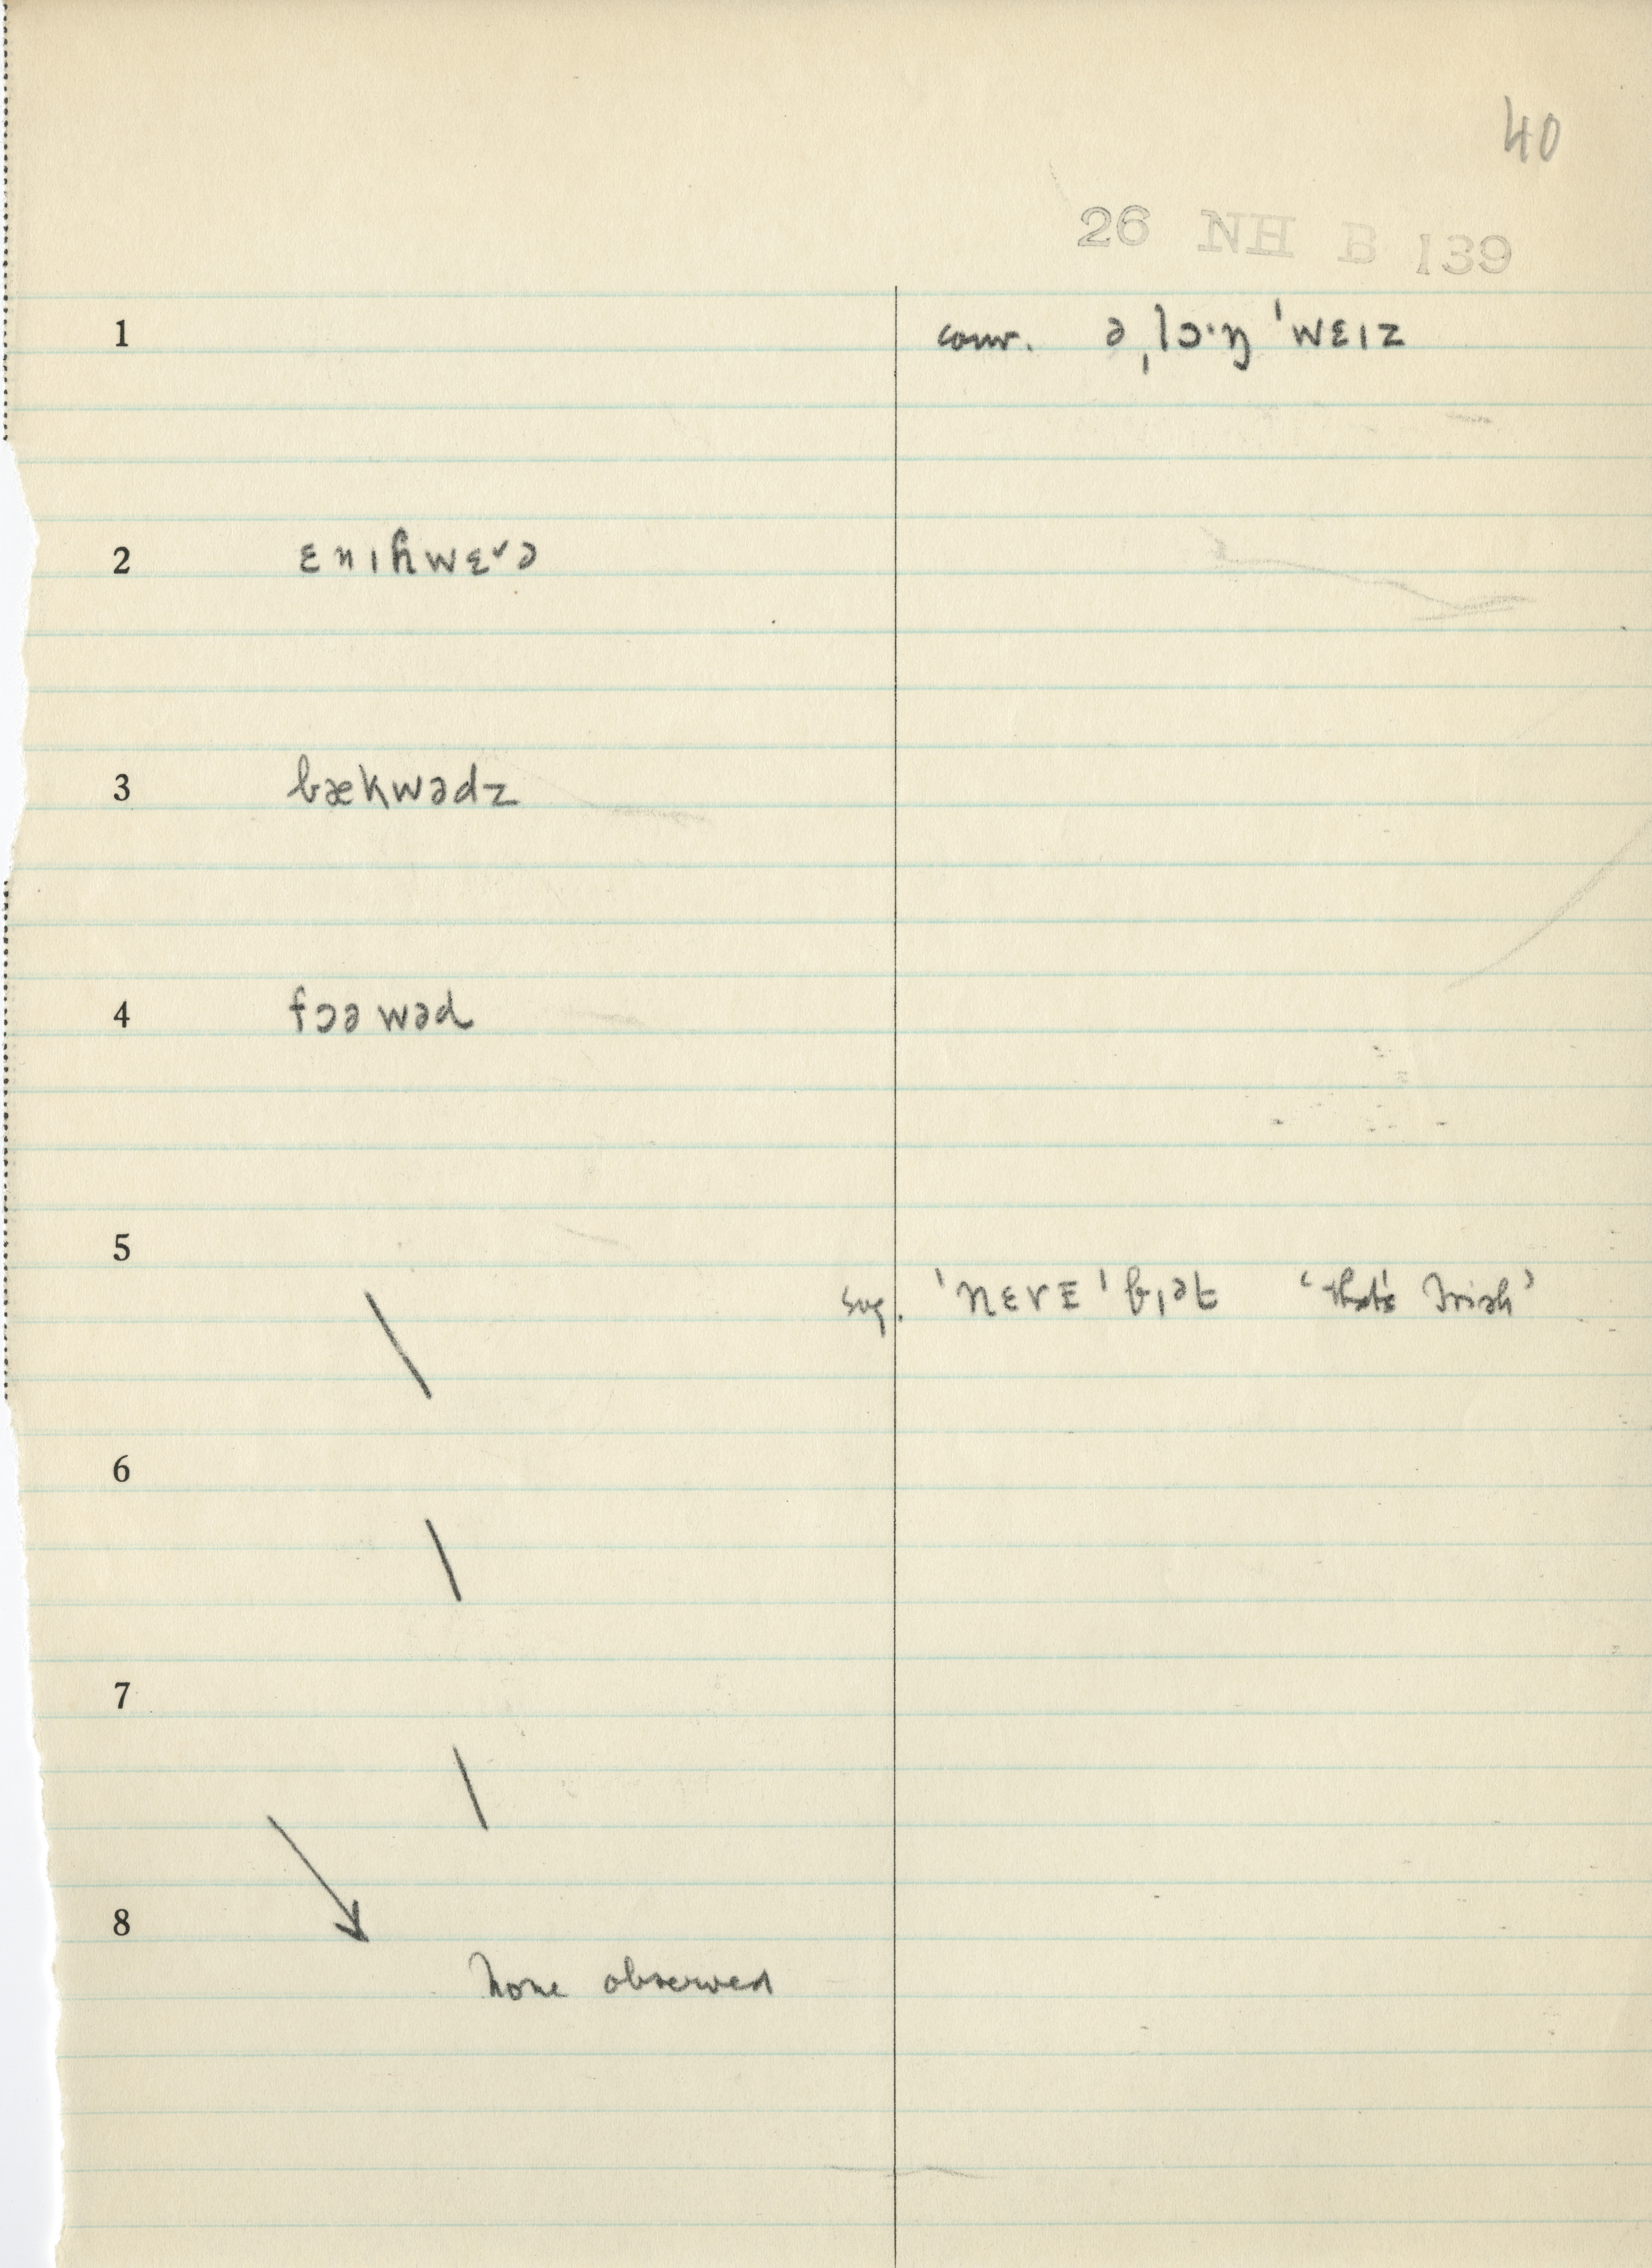 40
26 NH B 139
1 conv. ə ˌlɔ·ŋ ˈwɛɪz
2 ɛnɪɦwɛ˅ə
3 bækwədz
4 fɔəwəd
5
sug. ˈnɛvɪ ˈb ɪət ‘that's Irish’
6
7
8
None observed